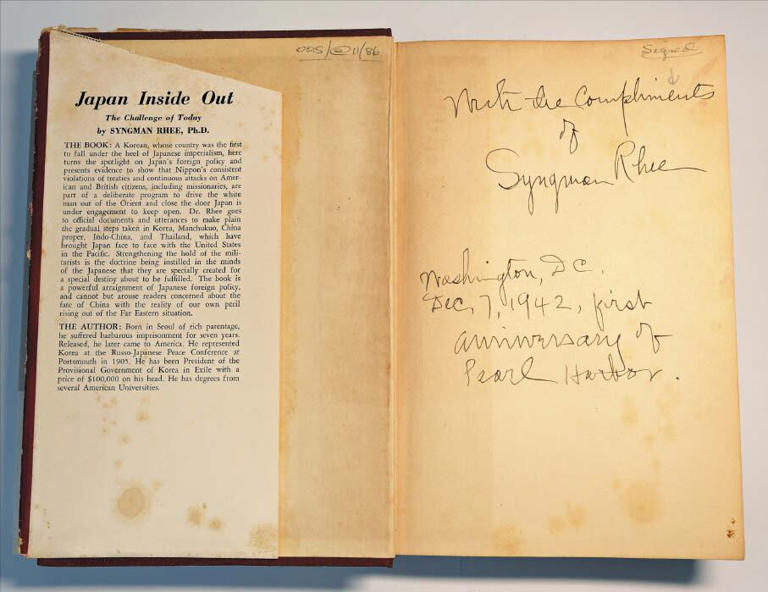 Japan Inside Out
The Challenge of Today
by SYNGMAN RHEE, Ph.D.
THE BOOK: A Korean, whose country was the first
to fall under the heel of Japanese imperialism, here
turns the spotlight on Japan's foreign policy and
presents evidence to show that Nippon's consistent
violations of treaties and continuous attacks on Amer-
ican and British citizens, including missionaries, are
part of a deliberate program to drive the white
man out of the Orient and close the door Japan is
under engagement to keep open. Dr. Rhee goes
to official documents and utterances to make plain
the gradual steps taken in Korea, Manchukuo, China
proper, Indo-China, and Thailand, which have
brought Japan face to face with the United States
in the Pacific. Strengthening the hold of the mili-
tarists is the doctrine being instilled in the minds
of the Japanese that they are specially created for
a special destiny about to be fulfilled. The book is
a powerful arraignment of Japanese foreign policy,
and cannot but arouse readers concerned about the
fate of China with the reality of our own peril
rising out of the Far Eastern situation.
THE AUTHOR: Born in Seoul of rich parentage,
he suffered barbarous imprisonment for seven years.
Released, he later came to America. He represented
Korea at the Russo-Japanese Peace Conference at
Portsmouth in 1905. He has been President of the
Provisional Government of Korea in Exile with a
price of $100,000 on his head. He has degrees from
several American Universities.
11/86
Signed
With the Compliments
of
Syngman Rhee
Washington, D.C.
Dec. 7, 1942, first
anniversary of
Pearl Harbor.